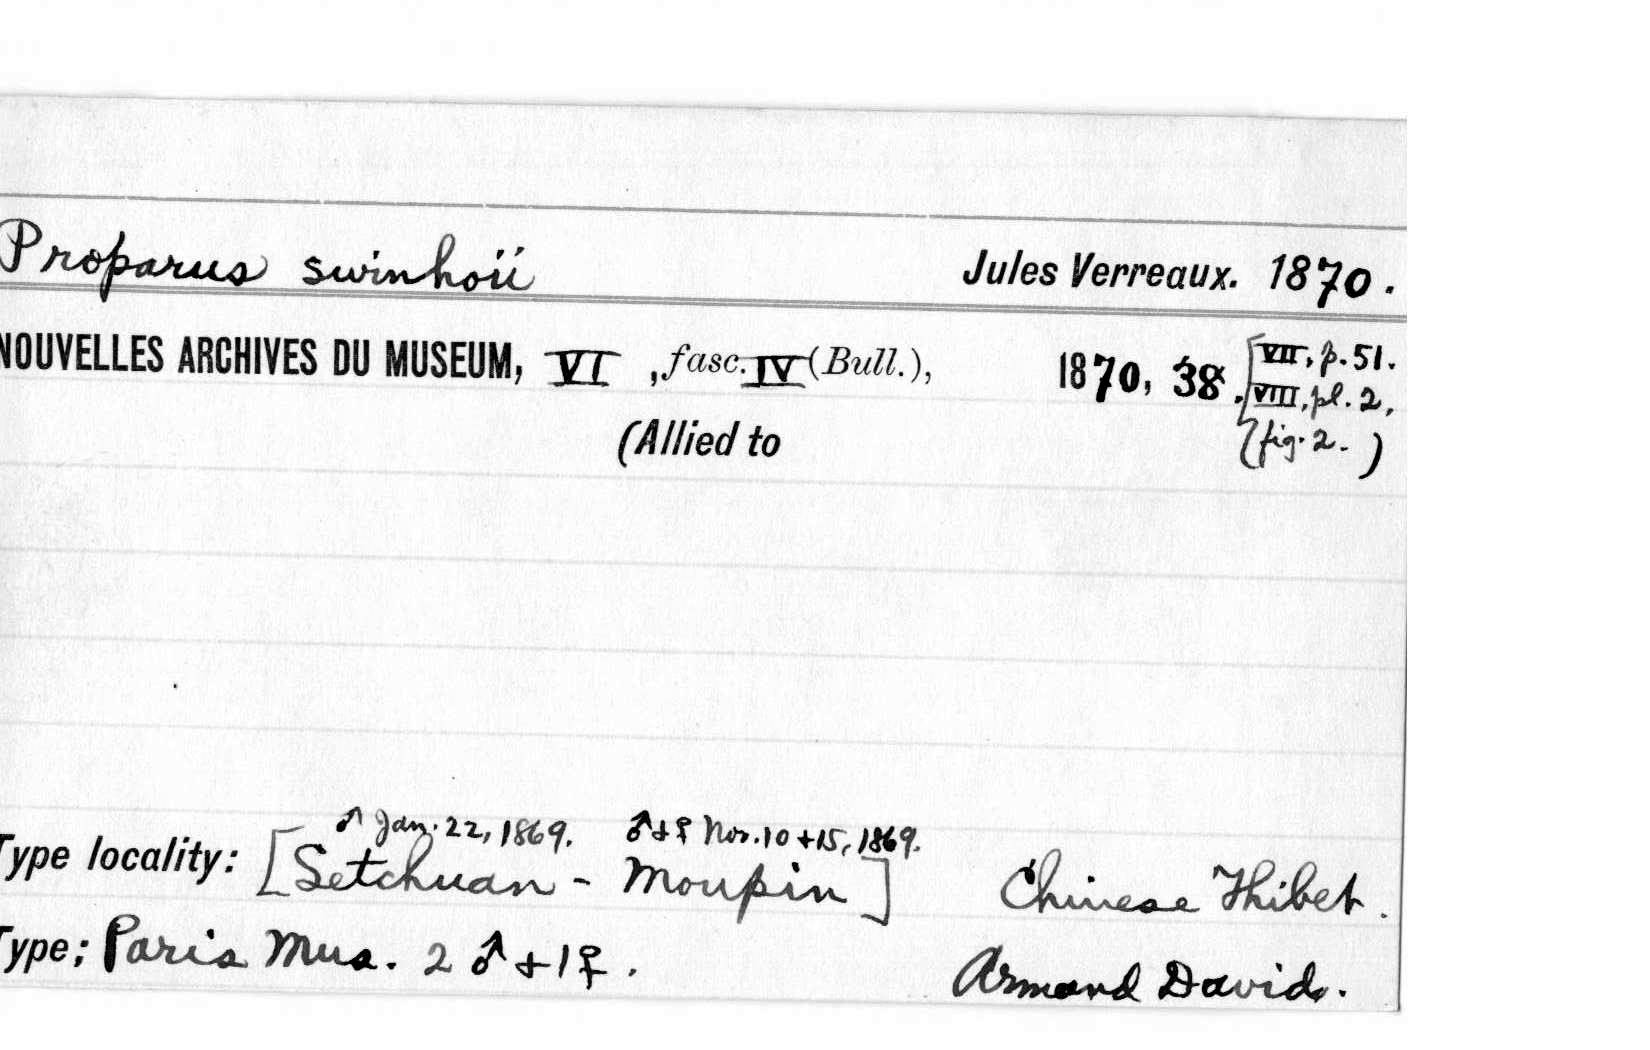 Proparus swinhoii Jules Verreaux. 1870.
NOUVELLES ARCHIVES DU MUSEUM, VI, fasc. IV (Bull.), 1870, 38. [VII, p. 51.
VIII, pl. 2,
(Allied to fig. 2. )
♂ Jan. 22, 1869. ♂+♀ Nov. 10+15, 1869.
Type locality: [Setchuan - Moupin] Chinese Thibet.
Type; Paris Mus. 2 ♂+1♀. Armand David.